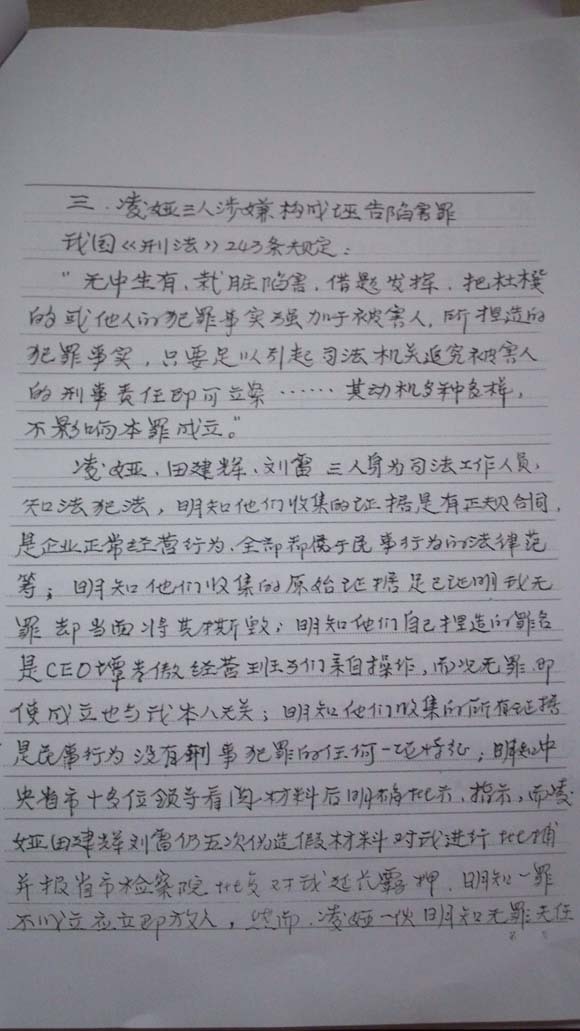 三.凌娅三人涉嫌构成诬告陷害罪
我国《刑法》243条规定:
"无中生有、栽脏陷害、借题发挥、把杜撰
的或他人的犯罪事实强加于被害人,所捏造的
犯罪事实,只要足以引起司法机关追究被害人
的刑事责任即可立案……其动机多种多样,
不影响本罪成立。"
凌娅、田建辉、刘雷三人身为司法工作人员,
知法犯法,明知他们收集的证据是有正规合同,
是企业正常经营行为、全部都属于民事行为的法律范
筹;明知他们收集的原始证据足已证明我无
罪却当面将其撕毁;明知他们自己捏造的罪名
是CEO谭岑傲经营班子们亲自操作,而况无罪即
使成立也与我本人无关;明知他们收集的所有证据
是民事行为没有刑事犯罪的任何一证特征;明知中
央省市十多位领导看阅材料后明确批示、指示,而凌
娅田建辉刘雷仍五次伪造假材料对我进行批捕
并报省市检察院批复对我延长羁押、明知一罪
不成立应立即放人,然而、凌娅一伙明知无罪无任